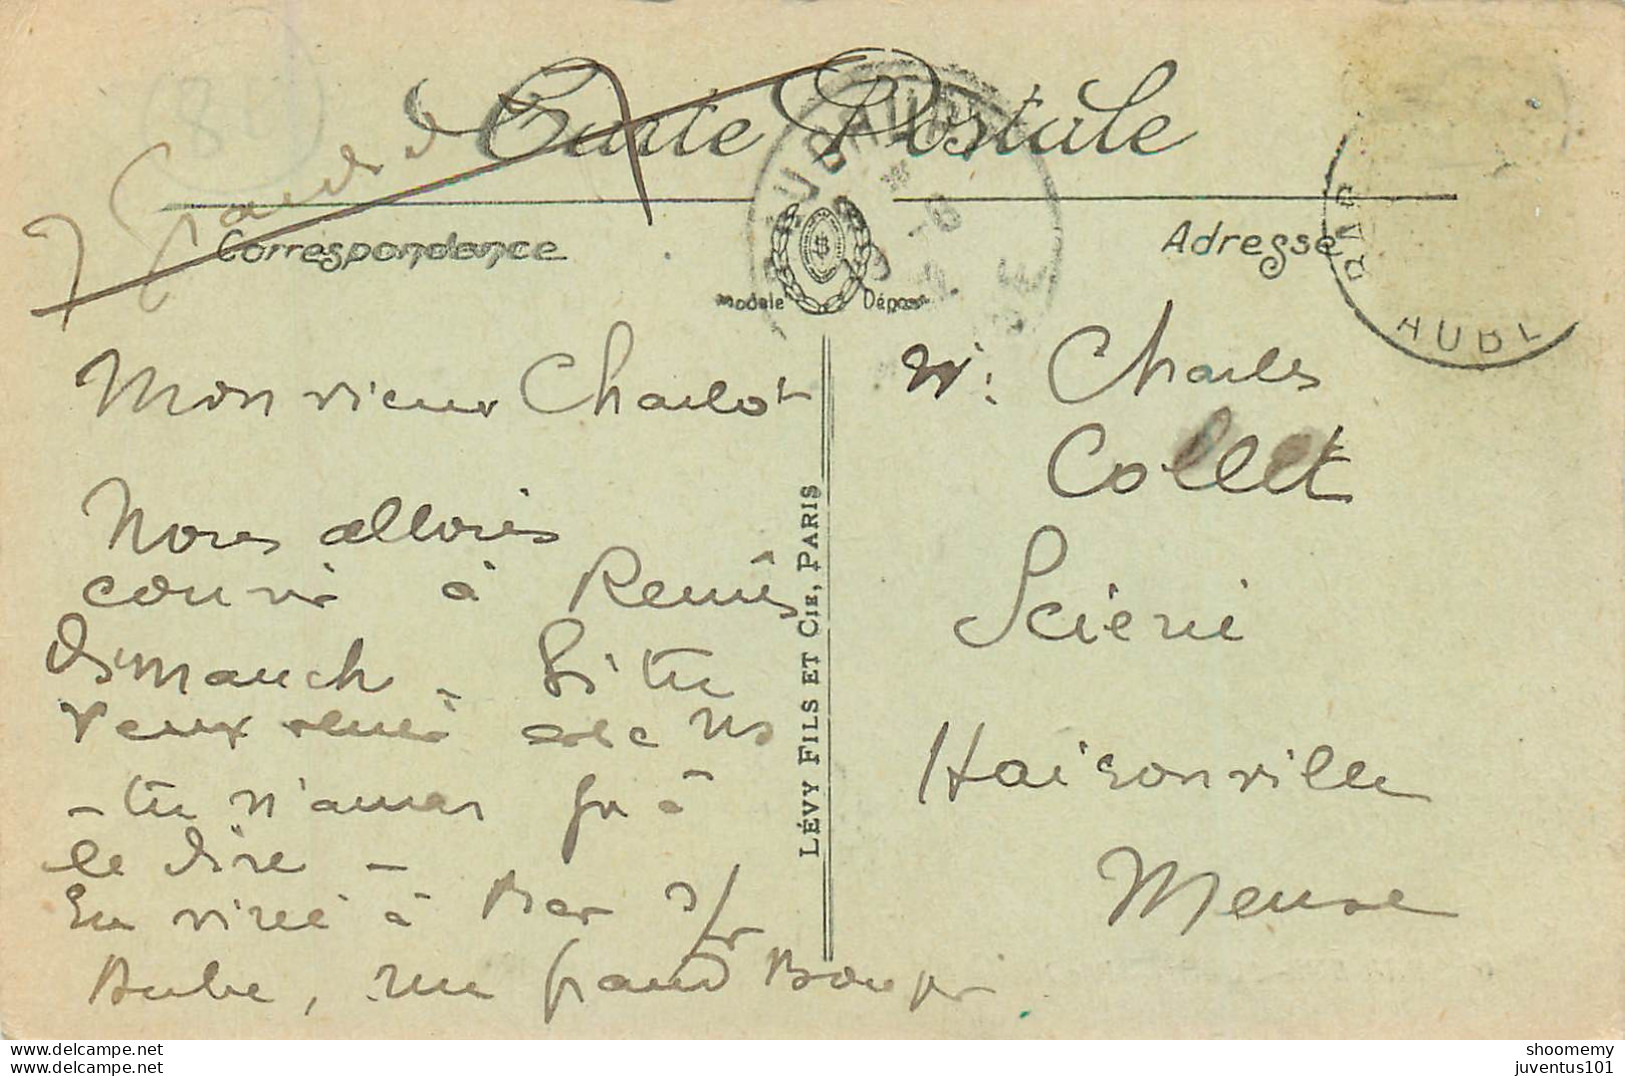 Carte Postale
Correspondance
Adresse
Modèle Déposé
BAR
AUBE
Mon vieux Charlot
Nous allons
courir à Reims
Dimanche. Si tu
veux venir avec Ns
- tu n'auras qu'à
le dire -
En virée à Bar s/r
Aube, un grand Bonjr
LÉVY FILS ET CIE, PARIS
Mr. Charles
Collet
Scierie
Haironville
Meuse
delcampe.net
shoomemy
juventus101